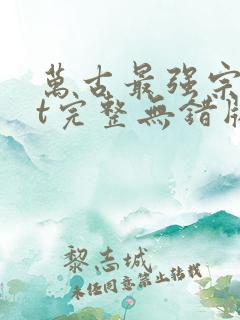 萬古最强宗
t完整無錯版
黎志城
未任同意禁止转载